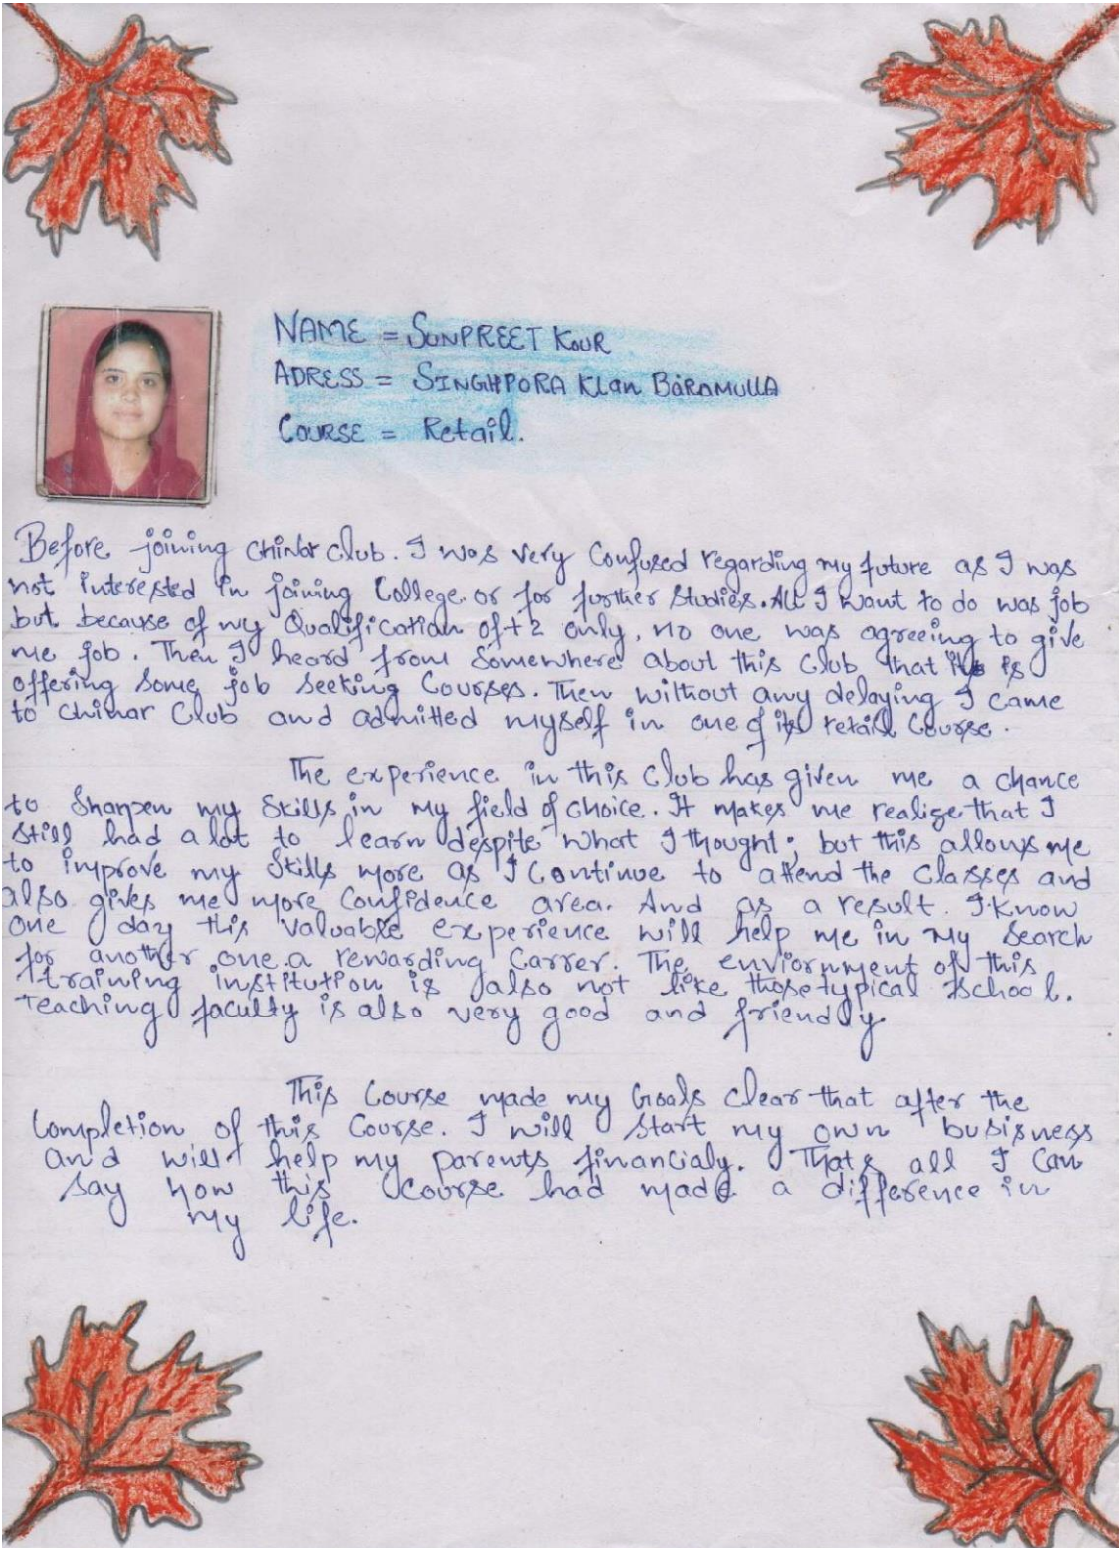 NAME = SUNPREET KOUR
ADRESS = SINGHPORA Klan BARAMULLA
COURSE = Retail.
Before joining chinar club. I was very Confused regarding my future as I was
not interested in joining College or for further studies. All I want to do was job
but because of my Qualification of +2 only, no one was agreeing to give
me job. Then I heard from Somewhere about this Club that is
offering some job seeking Courses. Then without any delaying I came
to chinar Club and admitted myself in one of its retail Course.
The experience in this Club has given me a chance
to Sharpen my Skills in my field of choice. It makes me realize that I
still had a lot to learn despite what I thought; but this allows me
to improve my Skills more as I Continue to attend the classes and
also gives me more Confidence area. And as a result. I know
one day this valuable experience will help me in my Search
for another one.a rewarding Carrer. The enviornment of this
training institution is also not like those typical school.
Teaching faculty is also very good and friendly.
This Course made my Goals Clear that after the
Completion of this Course. I will start my own busisness
and will help my parents financialy. Thats all I Can
Say how this course had made a difference in
my life.